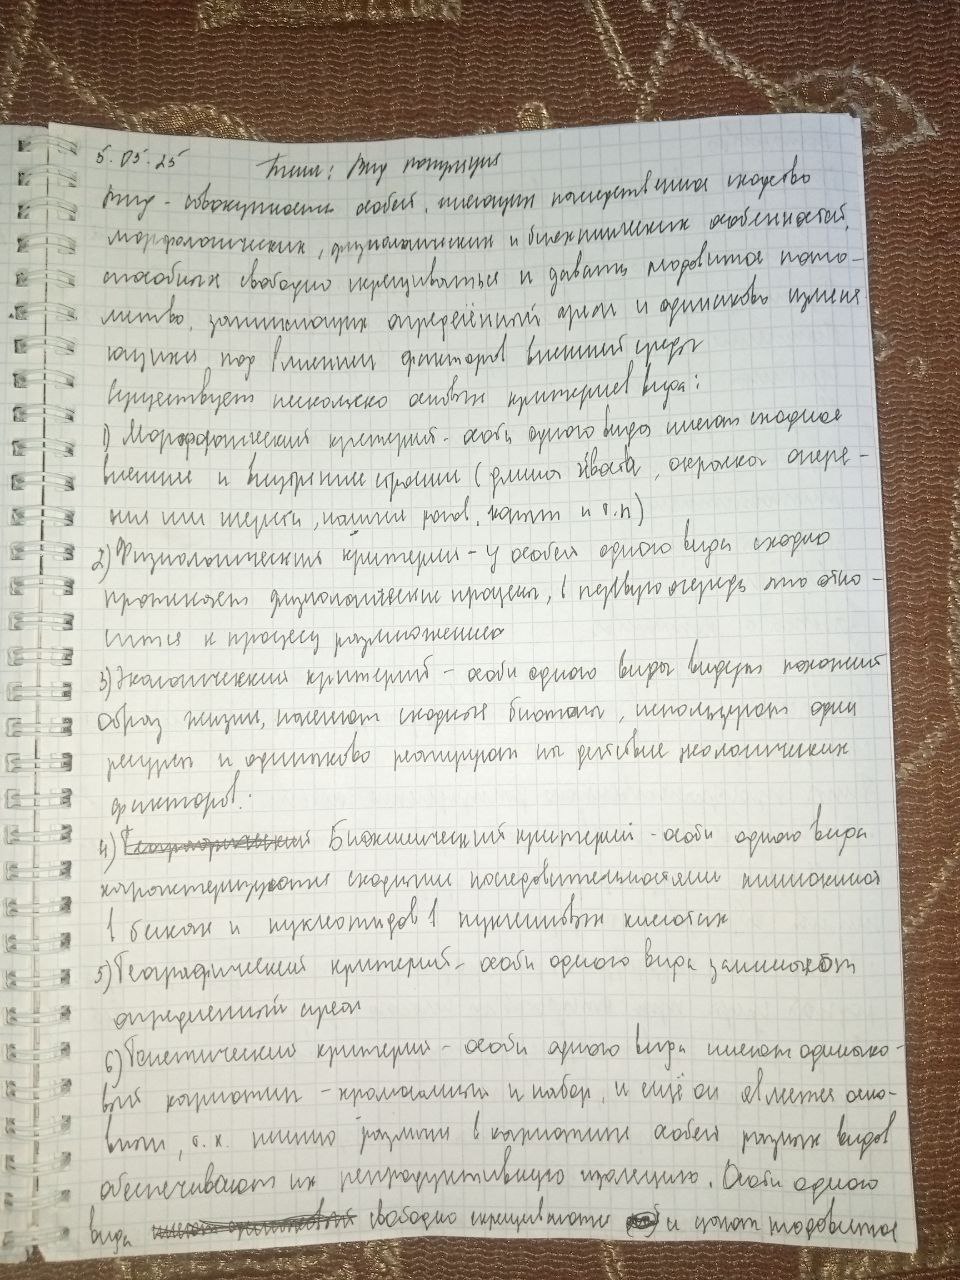 5.05.25 Тема: Вид популяция
Вид - совокупность особей, имеющих наследственное сходство
морфологических, физиологических и биохимических особенностей,
способных свободно скрещиваться и давать плодовитое пото-
мство, занимающих определённый ареал и одинаково изменя
ющихся под влиянием факторов внешней среды
Существует несколько основных критериев вида:
1) Морфологический критерий - особи одного вида имеют сходное
внешнее и внутреннее строение (длина хвоста, окраска опере-
ния или шерсти, наличие рогов, копыт и т.п)
2) Физиологический критерий - у особей одного вида сходно
протекают физиологические процессы, в первую очередь это отно-
сится к процессу размножения
3) Экологический критерий - особи одного вида ведут похожий
образ жизни, населяют сходные биотопы, используют одни
ресурсы и одинаково реагируют на действие экологических
факторов.
4) Географический Биохимический критерий - особи одного вида
характеризуются сходными последовательностями аминокислот
в белках и нуклеотидов в нуклеиновых кислотах
5) Географический критерий - особи одного вида занимают
определенный ареал
6) Генетический критерий - особи одного вида имеют одинако-
вый кариотип - хромосомный набор, и ещё он является осно-
вным, т.к. именно различия в кариотипе особей разных видов
обеспечивают их репродуктивную изоляцию. Особи одного
вида имеют одинаковый свободно скрещиваются и дают плодовитое